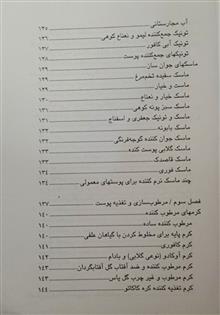 آب مجارستانی ۱۲۵
تونیک جمع‌کننده لیمو و نعناع کوهی ۱۲۷
تونیک آبی کافور ۱۲۷
تونیکهای جمع‌کننده پوست ۱۲۸
ماسکهای جوان ساز ۱۲۹
ماسک سفیده تخم‌مرغ ۱۲۹
ماست و خیار ۱۲۹
ماسک خیار و نعناع ۱۳۰
ماسک سبز پونه کوهی ۱۳۰
ماسک و تونیک جعفری و اسفناج ۱۳۱
ماسک بابونه ۱۳۲
ماسک جوان کننده گوجه‌فرنگی ۱۳۲
ماسک گلابی پوست کنده ۱۳۳
ماسک قاصدک ۱۳۳
ماسک فوری ۱۳۳
چند ماسک نرم کننده برای پوستهای معمولی ۱۳۴
فصل سوم / مرطوب‌سازی و تغذیه پوست ۱۳۷
کرمهای مرطوب کننده ۱۴۰
مرطوب کننده ساده ۱۴۰
کرم پایه برای مخلوط کردن با گیاهان علفی ۱۴۰
کرم کافوری ۱۴۱
کرم آوکادو (نوعی گلابی) و بادام ۱۴۲
کرم مرطوب کننده و ضد آفتاب گل آفتابگردان ۱۴۳
کرم مرطوب و غیر چرب گل یاس ۱۴۳
کرم تغذیه کننده کره کاکائو ۱۴۴